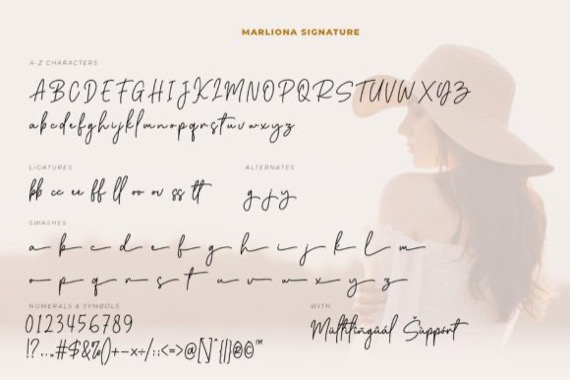 MARLIONA SIGNATURE
A-Z CHARACTERS
ABCDEFGHIJKLMNOPQRSTUVWXYZ
abcdefghijklmnopqrstuvwxyz
LIGATURES
ALTERNATES
bb cc ee ff ll oo ov ss tt
g j y
SWASHES
a b c d e f g h i j k l m
o p q r s t u v w x y z
NUMERALS & SYMBOLS
WITH
0123456789
Mültilingúál Šüppórt